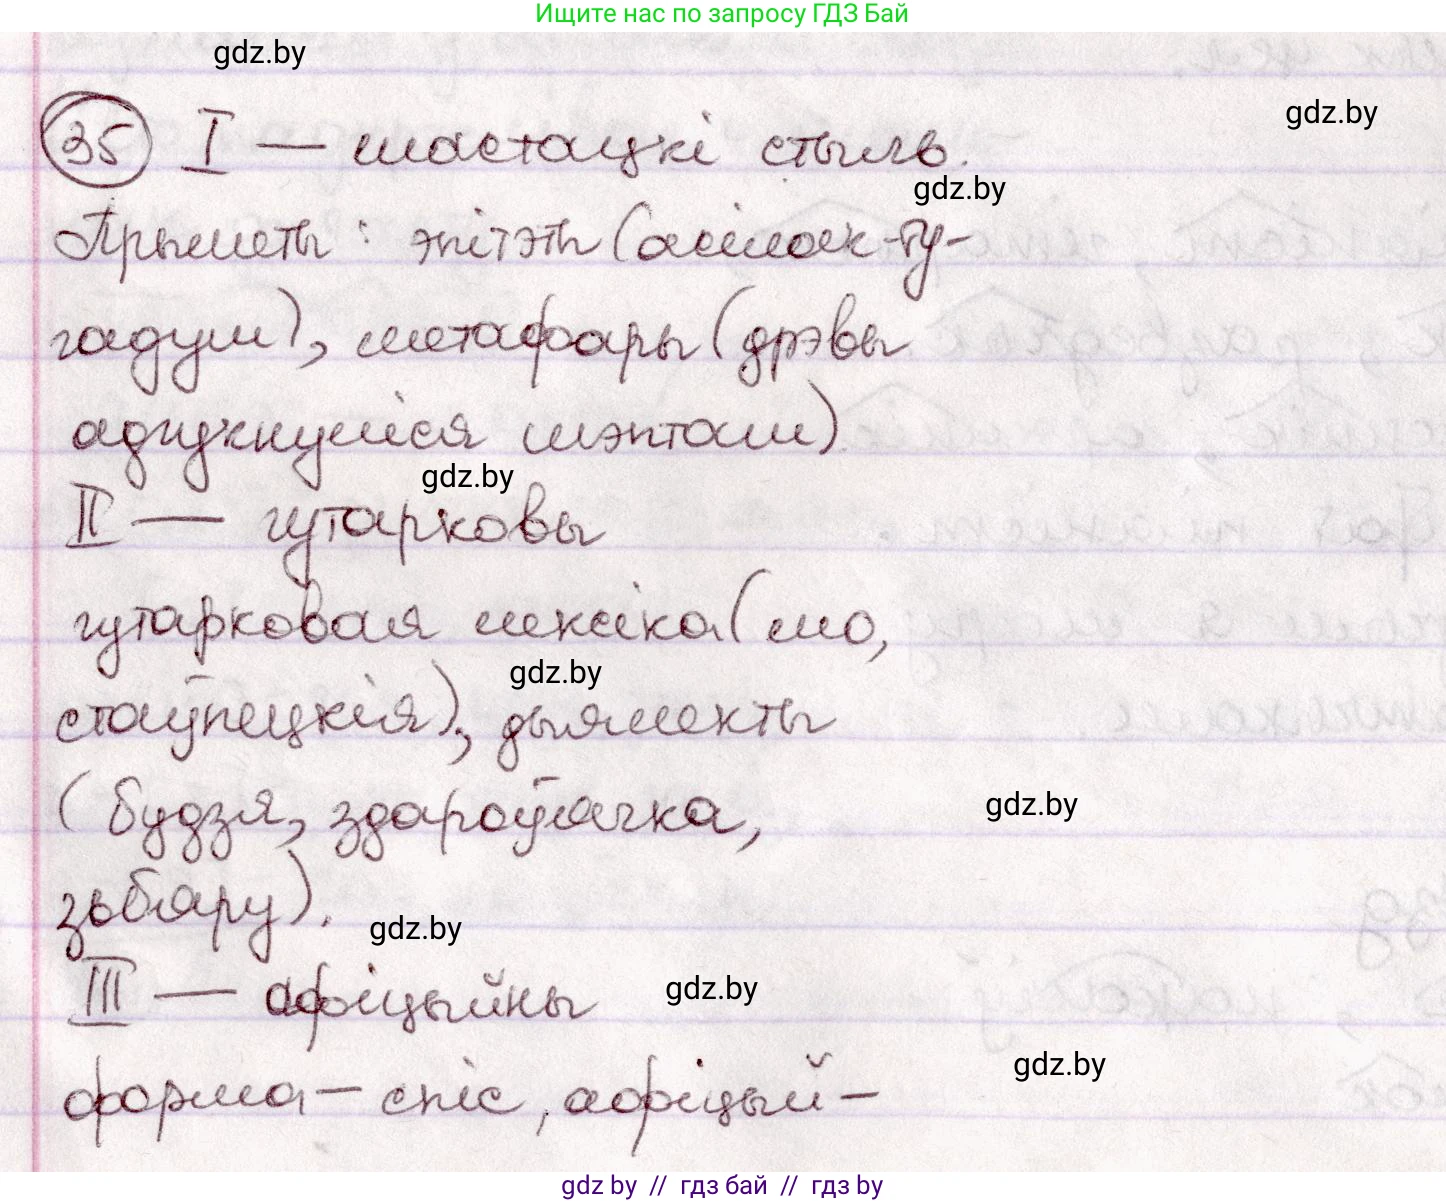 Ищите нас по запросу ГДЗ Бай
gdz.by
gdz.by
35 I — мастацкі стыль.
gdz.by
Прыметы: эпітэты (асілак-ту-
гадум), метафары (дрэвы
адгукнуліся шэптам)
gdz.by
II — гутарковы
гутарковая лексіка (мо,
gdz.by
стаўпецкія), дыялекты
(будзя, здароўячка,
gdz.by
зьбяру).
gdz.by
III — афіцыйны
gdz.by
gdz.by
форма — спіс, афіцый-
gdz by // гдз бай // гдз by